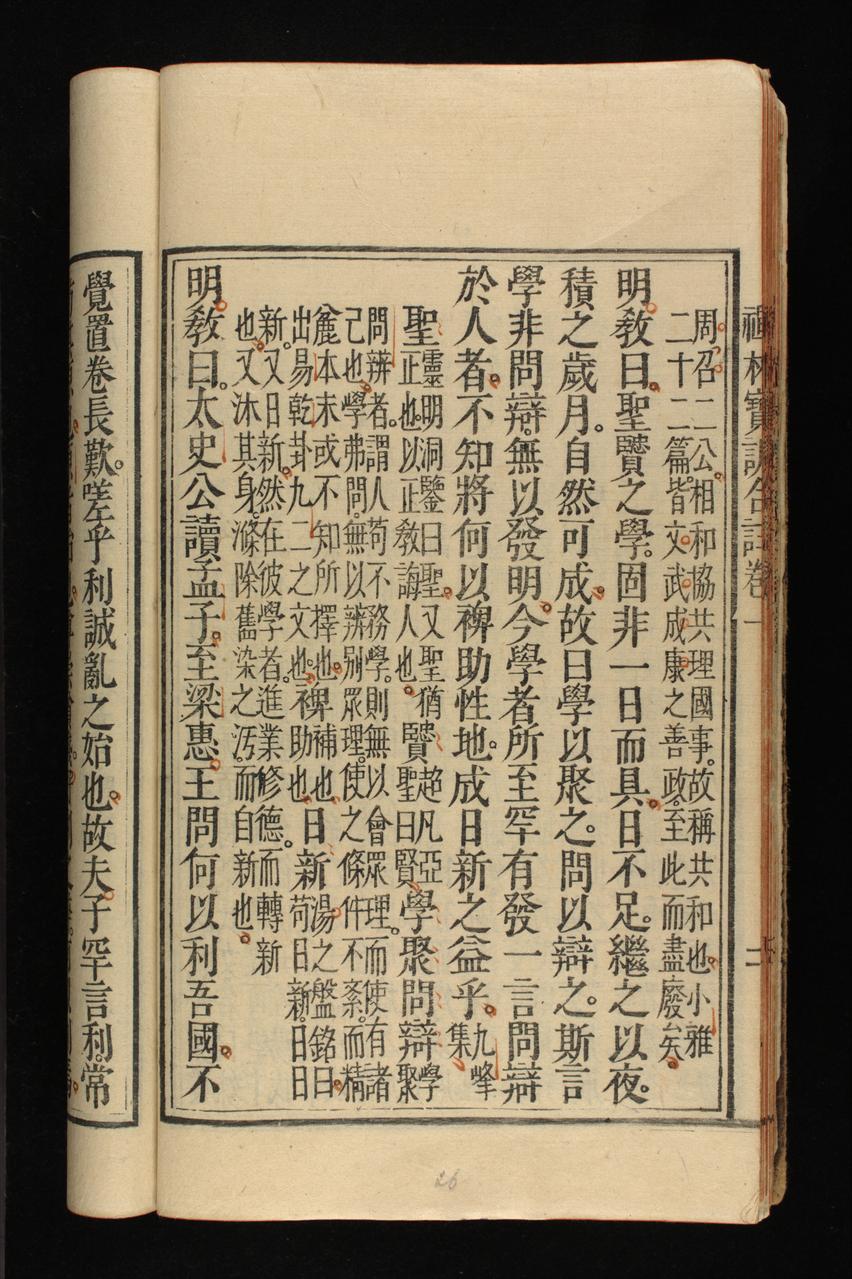 禪林寶訓合註卷一
二
周召二公。相和協共理國事。故稱共和也。小雅
二十二篇。皆文武成康之善政。至此而盡廢矣。
明教曰。聖賢之學。固非一日而具。日不足。繼之以夜。
積之歲月。自然可成。故曰學以聚之。問以辯之。斯言
學非問辯。無以發明。今學者所至罕有發一言問辯
於人者。不知將何以裨助性地。成日新之益乎。九峰集
聖靈明洞鑒曰聖。又聖猶
正也。以正教誨人也。賢超凡亞
聖曰賢學聚問辯學聚
問辨者。謂人苟不務學。則無以會眾理。而使有諸
己也。學弗問。無以辨别眾理。使之條件不紊。而精
麄本末或不知所擇也。裨補也。日新湯之盤銘曰。
出易乾卦九二之文也。裨助也苟日新。日日
新。又日新。然在彼學者。進業修德。而轉新
也。又沐其身。滌除舊染之汚。而自新也。
明教曰。太史公讀孟子。至梁惠王問何以利吾國。不
覺置卷長歎。嗟乎利誠亂之始也。故夫子罕言利。常
26